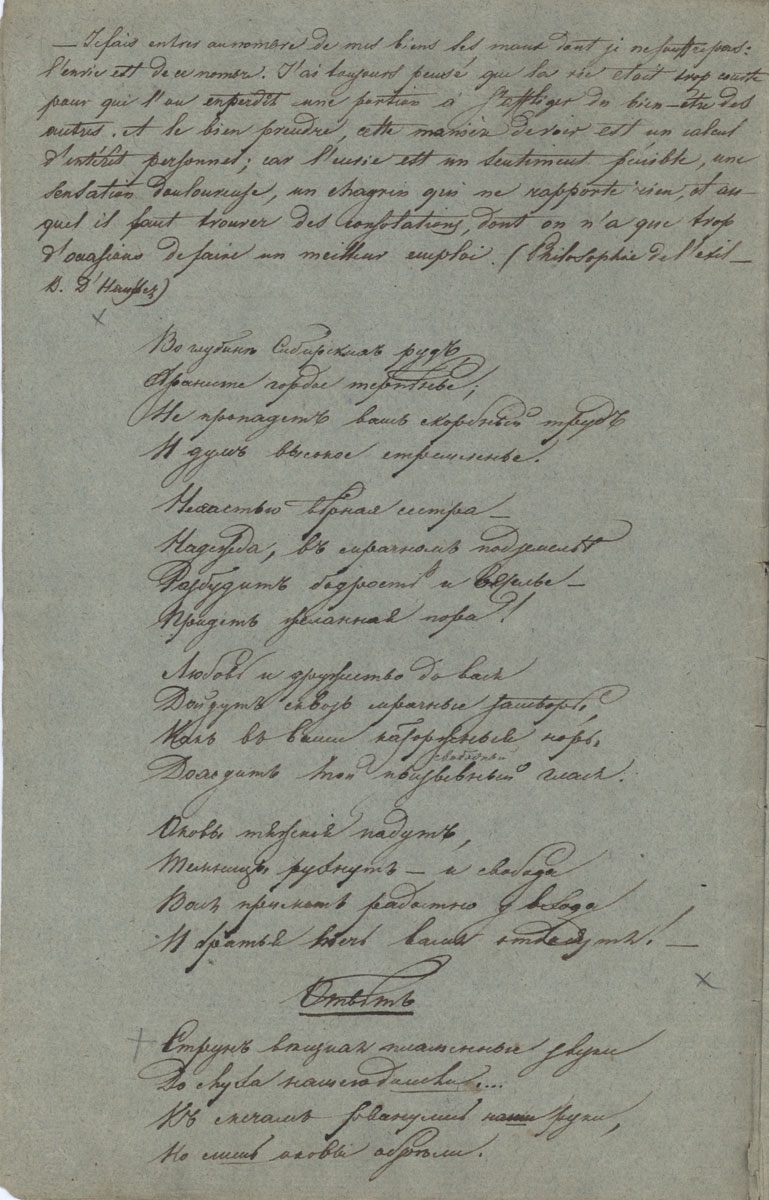 — Je fais entrer au nombre de mes biens les maux dont je ne souffre pas:
l'envie est de ce nombre. J'ai toujours pensé que la vie était trop courte
pour qui l'on en perdît une portion à s'affliger du bien-être des
autres. A le bien prendre, cette manière de voir est un calcul
d'intérêt personnel; car l'envie est un sentiment pénible, une
sensation douloureuse, un chagrin qui ne rapporte rien, et au-
quel il faut trouver des consolations, dont on n'a que trop
d'occasions de faire un meilleur emploi. (Philosophie de l'exil —
B. D'Haussez)
Во глубинѣ Сибирскихъ рудъ
Храните гордое терпѣнье;
Не пропадетъ вашъ скорбный трудъ
И думъ высокое стремленье.
Несчастью вѣрная сестра —
Надежда, въ мрачномъ подземельѣ
Разбудитъ бодрость и веселье —
Прийдетъ желанная пора!
Любовь и дружество до васъ
Дойдутъ сквозь мрачные затворы,
Какъ въ ваши каторжныя норы
свободный
Доходитъ мой призывный гласъ.
Оковы тяжкія падутъ,
Темницы рухнутъ — и свобода
Васъ приметъ радостно у входа
И братья мечь вамъ отдадутъ! —
Отвѣтъ
Струнъ вѣщихъ пламенные звуки
До слуха нашего дошли ....
Къ мечамъ рванулись наши руки,
Но лишь оковы обрѣли.